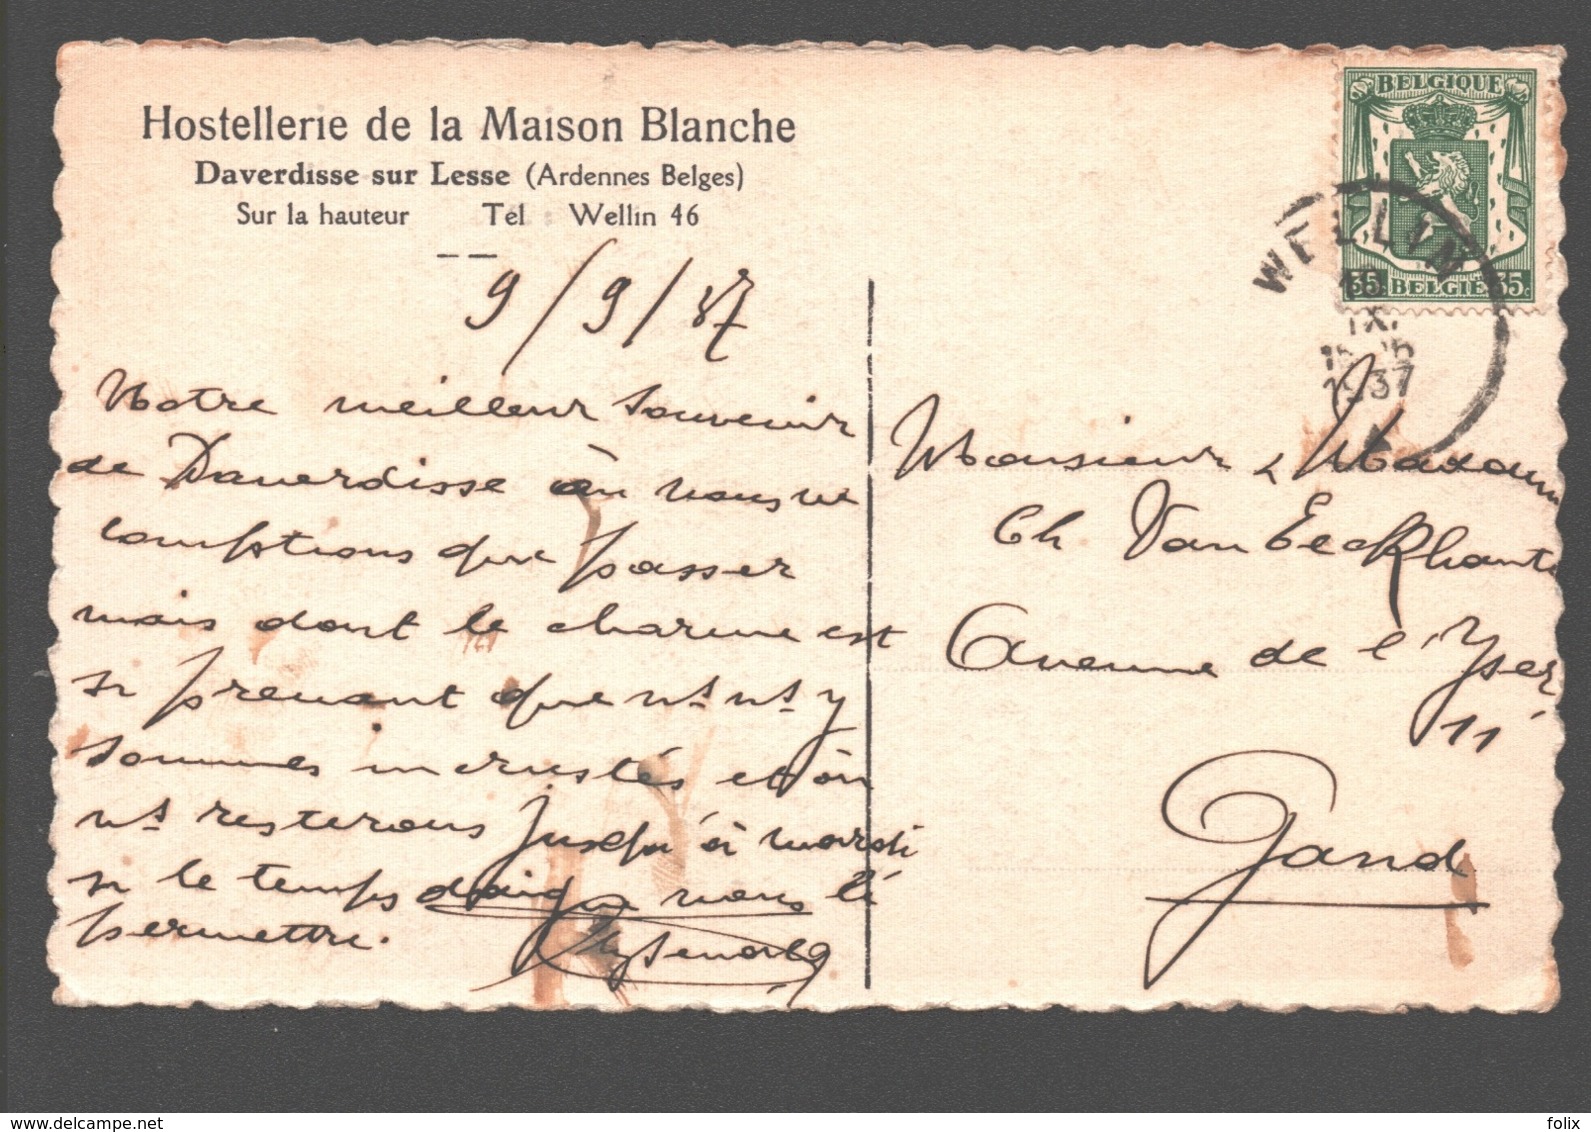 Hostellerie de la Maison Blanche
Daverdisse sur Lesse (Ardennes Belges)
Sur la hauteur Tél : Wellin 46
9/9/37
Notre meilleur souvenir
de Daverdisse où nous ne
comptions que passer
mais dont le charme est
si prenant que ns ns y
sommes incrustés et où
ns resterons jusqu'à mardi
si le temps daigne nous le
permettre.
BELGIQUE
35c BELGIË 35c
WELLIN
10
IX.
1937
Monsieur & Madame
Ch Van Eeckhaute
Avenue de l'Yser
11
Gand
www.delcampe.net
folix